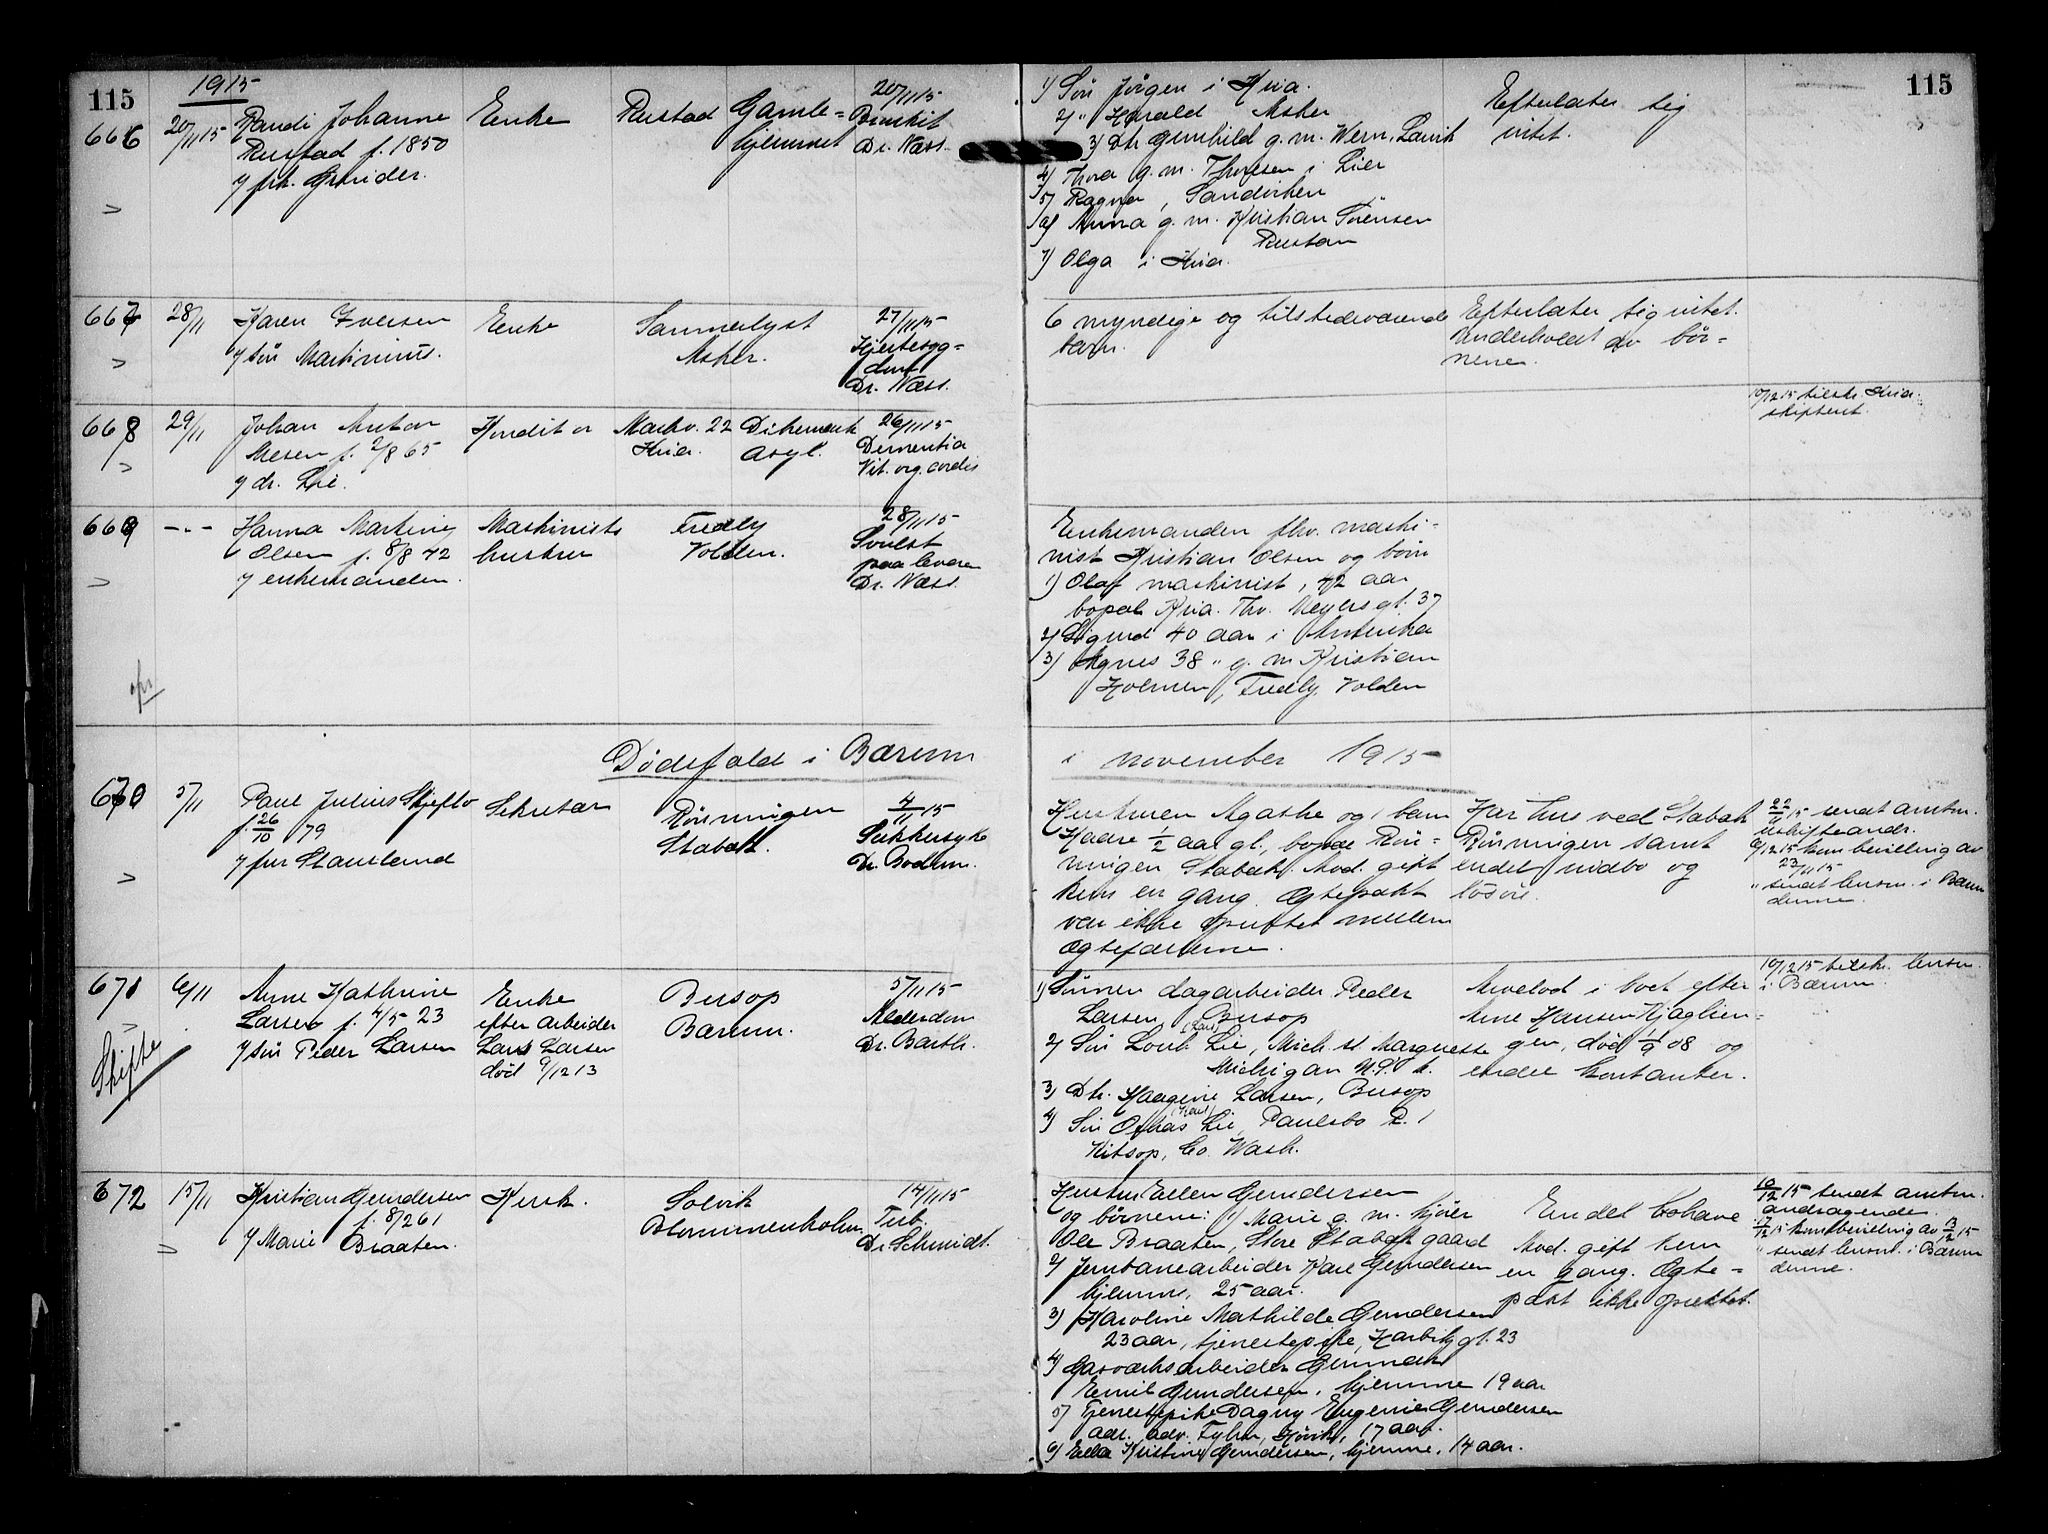 115
1915
115
666
20/11 15
Randi Johanne
Rustad f. 1850
Enke
Rustad
Gamle-
hjemmet
20/11 15
Bronkit
Dr. Næss.
1) Sön Jörgen i Kria.
2) " Harald Asker
3) Dtr. Gunhild g. m. Wern. Larvik
4) Thora g. m. Thoresen i Lier
5) Ragna, Sandviken
6) Anna g. m. Kristian Sörensen
Rustan
7) Olga i Kria.
Efterlater sig
intet.
667
28/11
Karen Iversen
v/ sön Martinius.
Enke
Sommerlyst
Asker.
27/11 15
Dr. Næss.
6 myndige og tilstedeværende
barn.
Efterlater sig intet.
Underholdt av bör-
nene.
668
29/11
Johan Anton
f. 2/8 65
v/ dr. Lie.
Konditor
Markv. 22
Kria.
Dikemark
Asyl.
26/11 15
Dementia
Vit. org. cordis
10/12 15 tilskr. Kria.
skifteret.
669
- " -
Hanna Martine
Olsen f. 8/8 42
v/ enkemanden.
Maskinists
hustru
Fredly
Volden.
28/11 15
Svulst
paa leveren
Dr. Næss.
Enkemanden fhv. maski-
nist Kristian Olsen og börn
1) Olaf maskinist, 42 aar
bopæl Kria. Thv. Meyers gt. 37
2) Sigurd 40 aar i Amerika
3) Agnes 38 " g. m. Kristian
Holmen, Fredly Volden
Dödsfald i Bærum
i november 1915
670
5/11
Paul Julius Skjeflo
f. 26/10 79
v/ fru Stauslund
Sekretær
Rönningen
Stabæk.
4/11 15
Sukkersyke
Dr. Bodem.
Hustruen Agathe og 1 barn
Kaare 1/2 aar gl., bopæl Rön-
ningen Stabæk. Avd. gift
kun en gang. Ægtepakt
var ikke oprettet mellem
ægtefællerne.
Har hus ved Stabæk
Rönningen samt
endel indbo og
lösöre.
22/11 15 sendt amtm.
uskifteandr.
6/12 15 kom bevilling av
23/11 15
" sendt lensm. i Bærum
denne.
671
Skifte
6/11
Anne Kathrine
Larsen f. 4/5 23
v/ sön Peder Larsen
Enke
efter arbeider
Lars Larsen
död 9/12 13
Burop
Bærum.
5/11 15
Alderdom
Dr. Barth.
1) Sönnen dagarbeider Peder
Larsen, Burop
2) Sön Lie, Mich. st. Marquette
Michigan N. A.
3) Dtr. Haagine Larsen, Burop
4) Sön Lie, Paulsbo R. 1
Kitsap, Co. Wash.
Arvelod i boet efter
Arne Hansen Kjaglien-
gen, död 1/9 08 og
endel kontanter.
10/12 15 tilskr. lensm.
i Bærum.
672
15/11
Kristian Gundersen
f. 8/2 61
v/ Marie Braaten.
Kusk.
Solvik
Blommenholm
14/11 15
Tub.
Dr. Schmidt.
Hustru Ellen Gundersen
og börnene: 1) Marie g. m. kjörer
Ole Braaten, Store Stabæk gaard
2) Jernbanearbeider Karl Gundersen
hjemme, 25 aar.
3) Karoline Mathilde Gundersen
23 aar, tjenestepike, Harbitzgt. 23
4) Gasværksarbeider Gunnar
Emil Gundersen, hjemme 19 aar
5) Tjenestepike Dagny Eugenie Gundersen
adr. adv. Hövik, 17 aar.
6) Ella Kristine Gundersen, hjemme, 14 aar.
Endel bohave
Avd. gift kun
en gang. Ægte-
pakt ikke oprettet.
10/12 15 sendt amtm.
andragende.
17/12 15 kom bevilling av 13/12 15
" sendt lensm. i Bærum
denne.